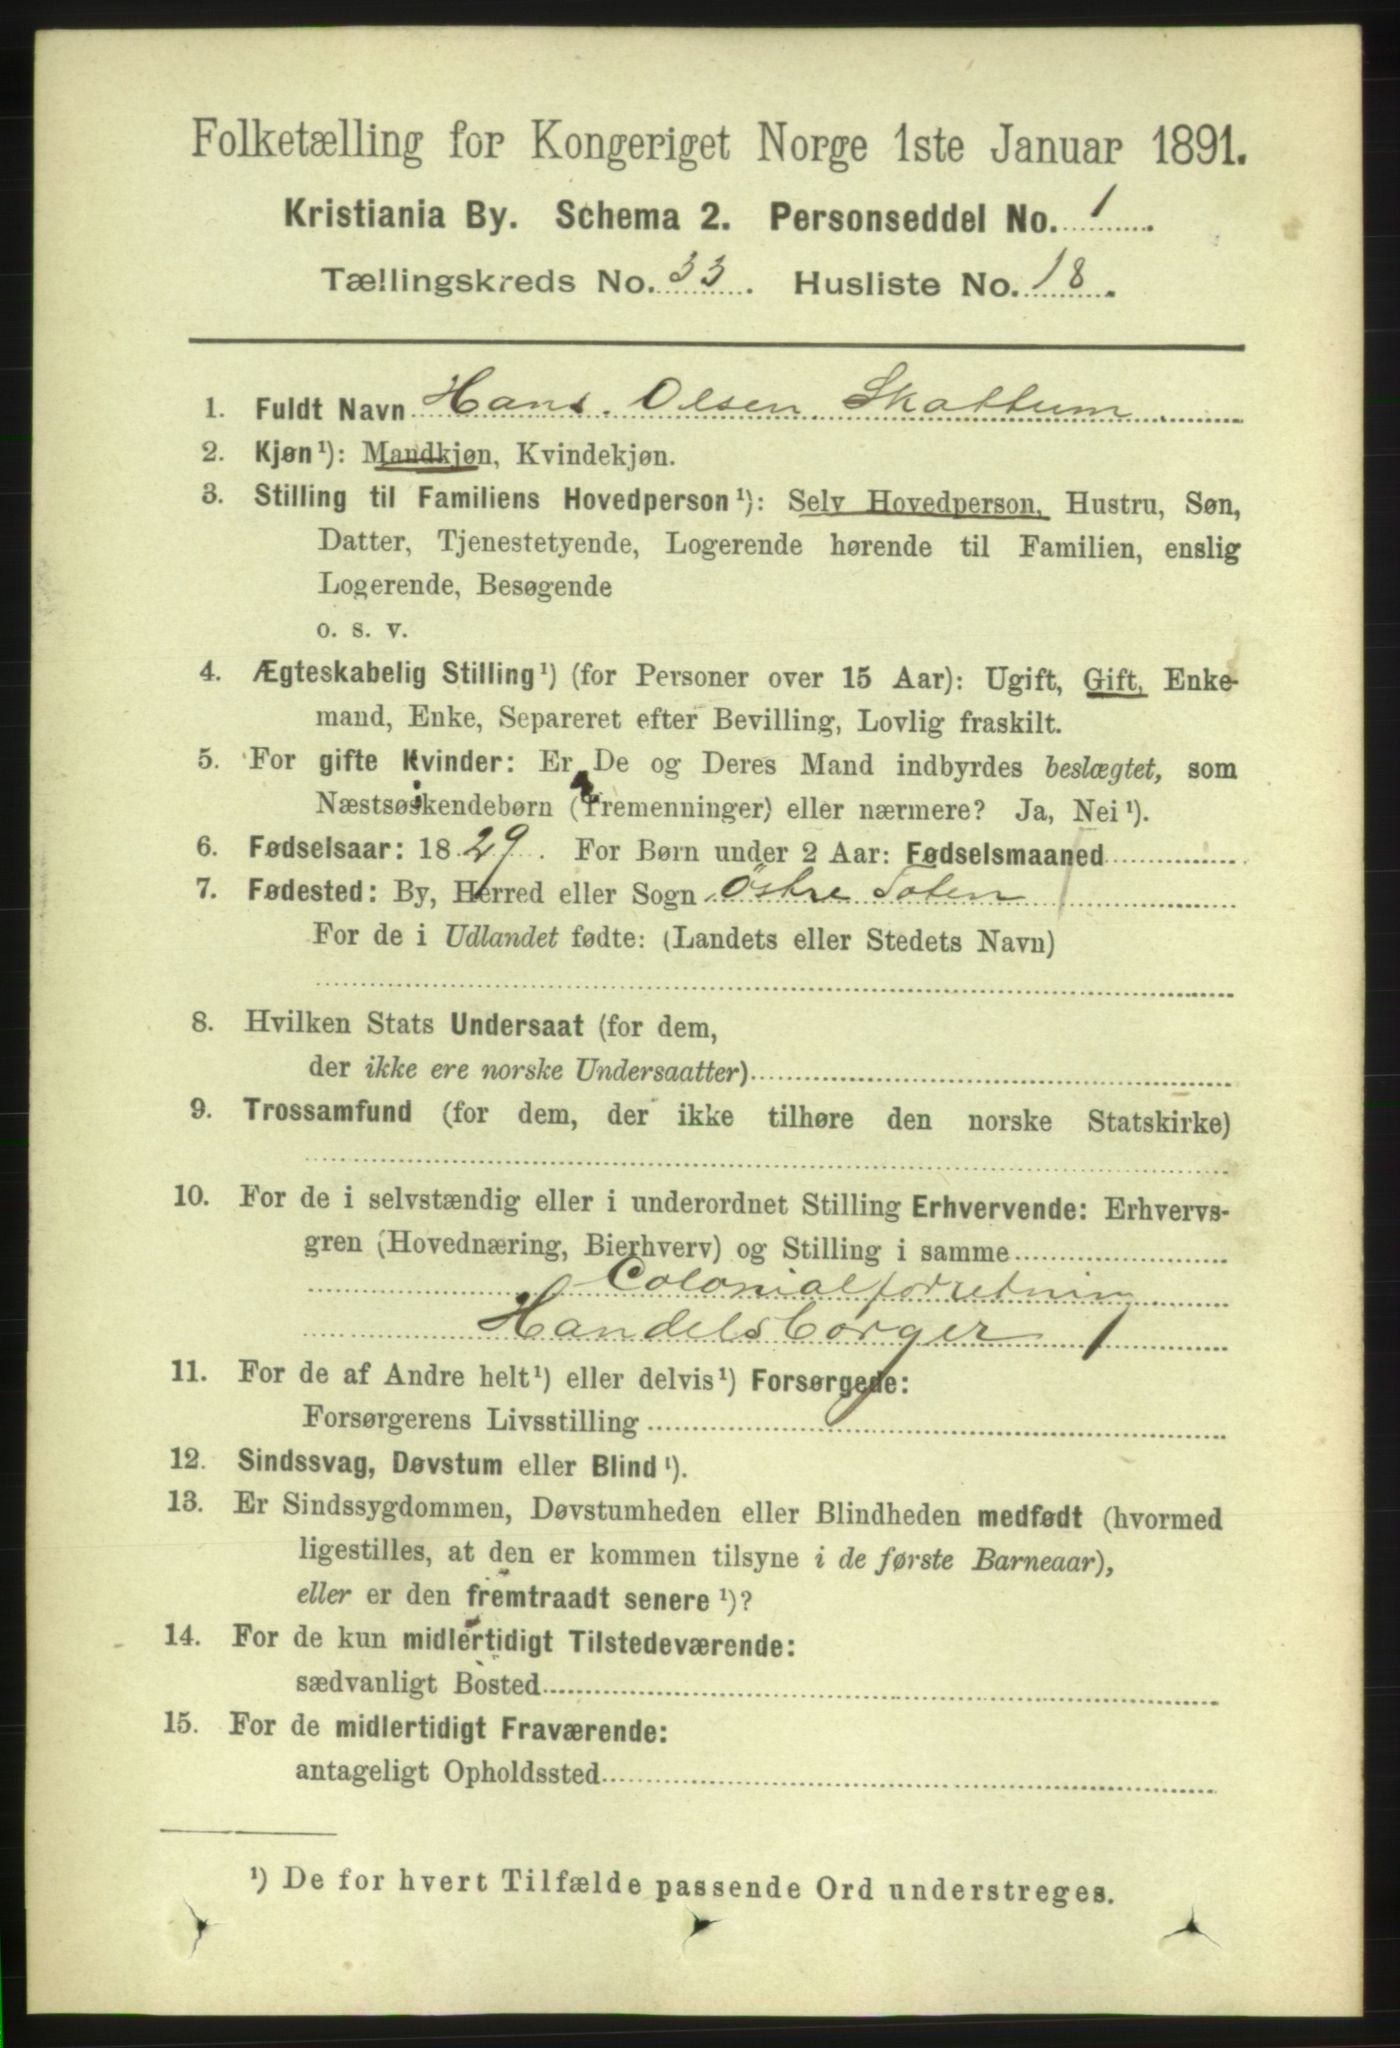 Folketælling for Kongeriget Norge 1ste Januar 1891.
Kristiania By. Schema 2. Personseddel No. 1
Tællingskreds No. 33. Husliste No. 18.
1. Fuldt Navn Hans Olsen Skattum
2. Kjøn¹): Mandkjøn, Kvindekjøn.
3. Stilling til Familiens Hovedperson¹): Selv Hovedperson, Hustru, Søn,
Datter, Tjenestetyende, Logerende hørende til Familien, enslig
Logerende, Besøgende
o. s. v.
4. Ægteskabelig Stilling¹) (for Personer over 15 Aar): Ugift, Gift, Enke-
mand, Enke, Separeret efter Bevilling, Lovlig fraskilt.
5. For gifte Kvinder: Er De og Deres Mand indbyrdes beslægtet, som
Næstsøskendebørn (Tremenninger) eller nærmere? Ja, Nei¹).
6. Fødselsaar: 1829. For Børn under 2 Aar: Fødselsmaaned
7. Fødested: By, Herred eller Sogn Östre Toten
For de i Udlandet fødte: (Landets eller Stedets Navn)
8. Hvilken Stats Undersaat (for dem,
der ikke ere norske Undersaatter)
9. Trossamfund (for dem, der ikke tilhøre den norske Statskirke)
10. For de i selvstændig eller i underordnet Stilling Erhvervende: Erhvervs-
gren (Hovednæring, Bierhverv) og Stilling i samme
Colonialforretnin
Handelsborger
11. For de af Andre helt¹) eller delvis¹) Forsørgede:
Forsørgerens Livsstilling
12. Sindssvag, Døvstum eller Blind¹).
13. Er Sindssygdommen, Døvstumheden eller Blindheden medfødt (hvormed
ligestilles, at den er kommen tilsyne i de første Barneaar),
eller er den fremtraadt senere¹)?
14. For de kun midlertidigt Tilstedeværende:
sædvanligt Bosted
15. For de midlertidigt Fraværende:
antageligt Opholdssted
¹) De for hvert Tilfælde passende Ord understreges.